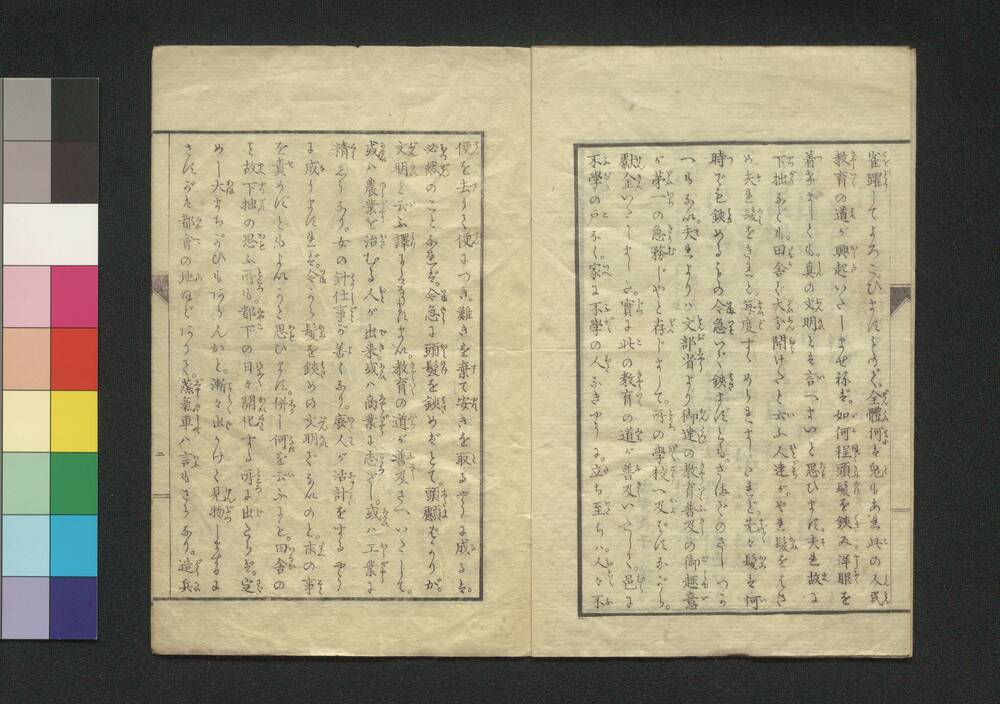 雀躍してよろこひますとのこと全體何を見もあれ此の人民
教育の道が興起いたしませねば如何程頭髪を鋏み洋服を
着ましても真の文明とも言へまいと思ひます夫故に
下拙なども田舎で大分開けたと云ふ人達がやれ髪をはさ
め夫れ髪をきれと毎度すゝめられましたれど先々髪を何
時でも鋏めるもの令急に鋏まずとも
へもない夫よりハ文部省より御達の教育普及の御趣意
が第一の急務じやと存じまして所の學校へ及ばずながら
獻金いたしました實に此の教育の道が普及いたしして邑に
不學の戸なく家に不學の人なきやうに立ち至らハ人々不
便を去りて便につき難きを棄て安きを取るやうに成るは
必然のことなれば令急に頭髪を鋏めばとて頭顱ばかりが
文明と云ふ譯にもまゐれません教育の道が普及さへいたして
或ハ農業を治むる人が出来或ハ商業に志ざし或ハ工業に
精しくなり女の針仕事が善くなり廢人が活計をするやう
に成りますれば令から髪を鋏めの文明でないのと末の事
を責めずともよいかと思ひます併し何を云ふにも田舎の
こと故下拙の思ふ所も都下の日々開化する所に出たらば定
めし大まちがひもあらんかと漸々出かけて見物しまするに
さすがは都會の地ほどありて蒸氣車ハ言もさらなり造兵
二